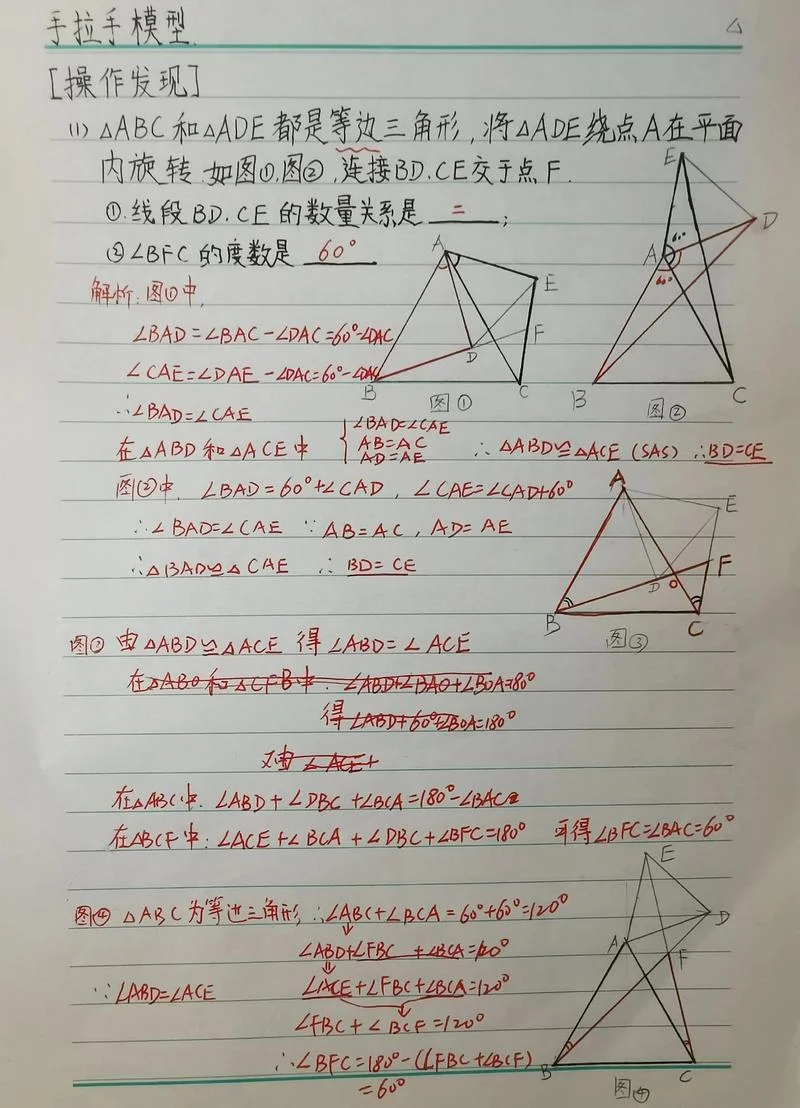 手拉手模型.
[操作发现]
(1) △ABC和△ADE都是等边三角形,将△ADE绕点A在平面
内旋转.如图①,图②,连接BD.CE交于点F.
①.线段BD.CE的数量关系是 = ;
②∠BFC的度数是 60°
解析:图①中,
∠BAD=∠BAC-∠DAC=60°-∠DAC
∠CAE=∠DAE-∠DAC=60°-∠DAC
∴∠BAD=∠CAE
A
E
D
F
B
C
图①
E
D
A
60°
60°
B
C
图②
在△ABD和△ACE中
∠BAD=∠CAE
AB=AC
AD=AE
∴△ABD≌△ACE (SAS) ∴BD=CE
图②中, ∠BAD=60°+∠CAD, ∠CAE=∠CAD+60°
∴∠BAD=∠CAE ∵AB=AC, AD=AE
∴△BAD≌△CAE ∴BD=CE
A
E
F
D
O
B
C
图③
由△ABD≌△ACE 得∠ABD=∠ACE
在△ABO和△CFB中. ∠ABD+∠BAO+∠BOA=180°
得∠ABD+60°+∠BOA=180°
又由∠ACE+
在△ABC中. ∠ABD+∠DBC+∠BCA=180°-∠BAC
在△BCF中: ∠ACE+∠BCA+∠DBC+∠BFC=180° 可得∠BFC=∠BAC=60°
图④ △ABC为等边三角形 ∴∠ABC+∠BCA=60°+60°=120°
∠ABD+∠FBC+∠BCA=120°
∵∠ABD=∠ACE ∠ACE+∠FBC+∠BCA=120°
∠FBC+∠BCF=120°
∴∠BFC=180°-(∠FBC+∠BCF)
=60°
E
D
A
F
B
C
图④